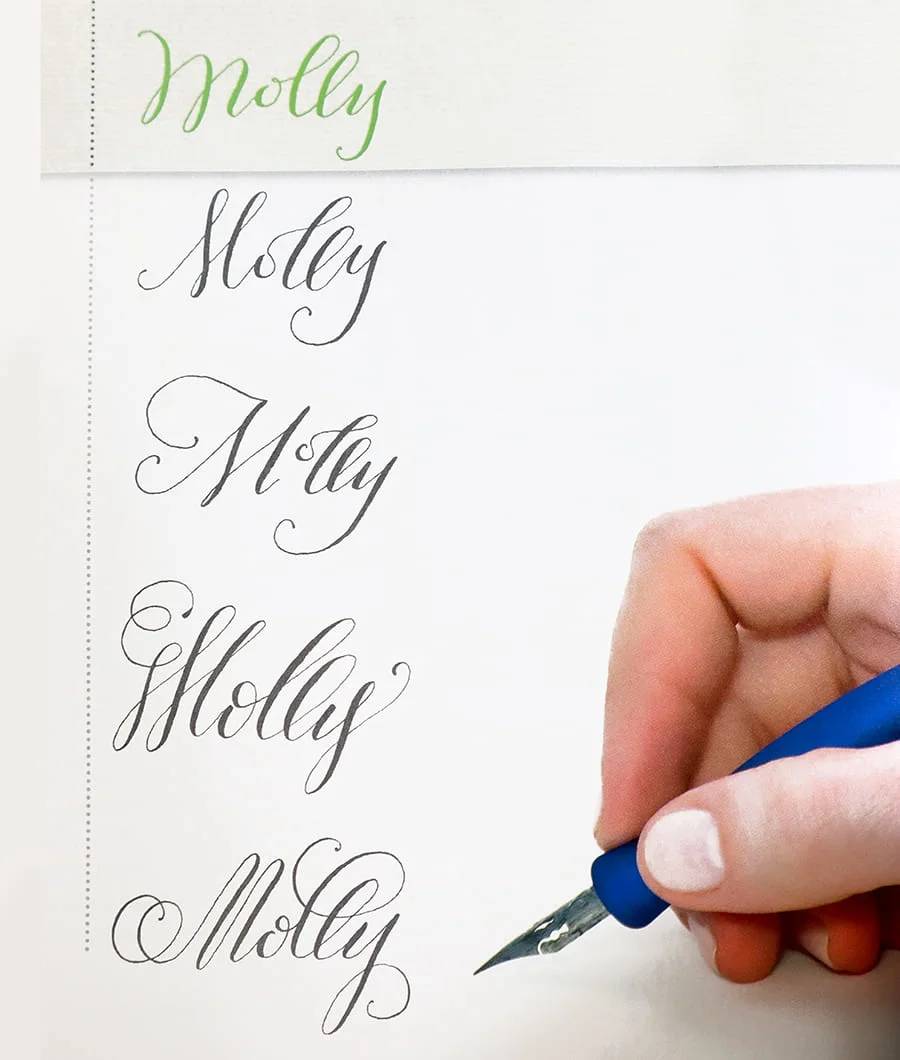 Molly
Molly
Molly
Molly
Molly